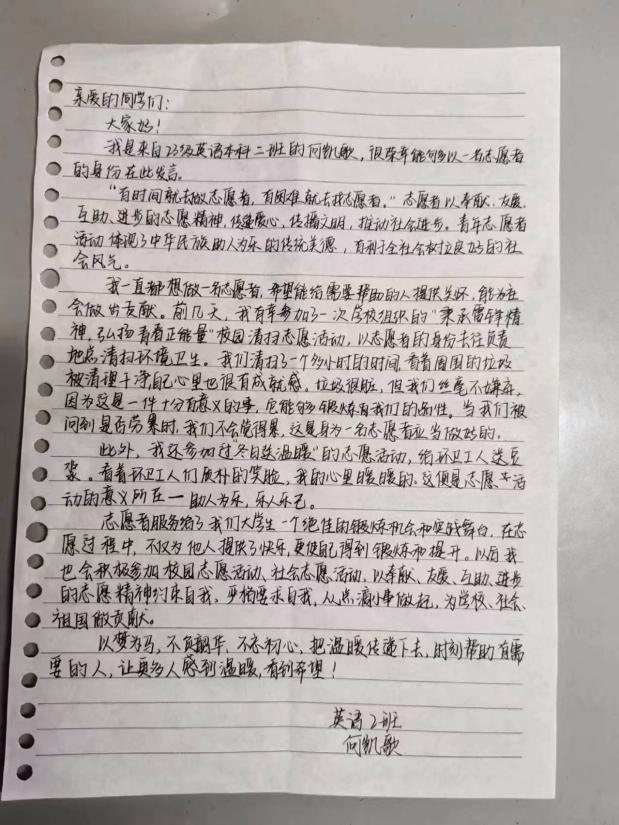 亲爱的同学们：
大家好！
我是来自23级英语本科二班的何凯歌，很荣幸能够以一名志愿者
的身份在此发言。
“有时间就去做志愿者，有困难就去找志愿者。”志愿者以奉献、友爱、
互助、进步的志愿精神，传递爱心，传播文明，推动社会进步。青年志愿者
活动体现了中华民族助人为乐的传统美德，有利于全社会树立良好的社
会风气。
我一直都想做一名志愿者，希望能给需要帮助的人提供关怀，能为社
会做出贡献。前几天，我有幸参加了一次学校组织的“秉承雷锋精
神，弘扬青春正能量”校园清扫志愿活动，以志愿者的身份去往负责
地点清扫环境卫生。我们清扫了一个多小时的时间，看着周围的垃圾
被清理干净，自己心里也很有成就感，垃圾很脏，但我们丝毫不嫌弃，
因为这是一件十分有意义的事，它能够锻炼着我们的品性。当我们被
问到是否劳累时，我们不会觉得累，这是身为一名志愿者应当做好的。
此外，我还参加过“冬日送温暖”的志愿活动，给环卫工人送豆
浆。看着环卫工人们质朴的笑脸，我的心里暖暖的。这便是志愿者活
动的意义所在——助人为乐，乐人乐己。
志愿者服务给了我们大学生一个绝佳的锻炼机会和实践舞台，在志
愿过程中，不仅为他人提供了快乐，更使自己得到锻炼和提升。以后我
也会积极参加校园志愿活动、社会志愿活动，以奉献、友爱、互助、进步
的志愿精神约束自我，严格要求自我，从点滴小事做起，为学校、社会、
祖国做贡献。
以梦为马，不负韶华，不忘初心，把温暖传递下去，时刻帮助有需
要的人，让更多人感到温暖，看到希望！
英语2班
何凯歌